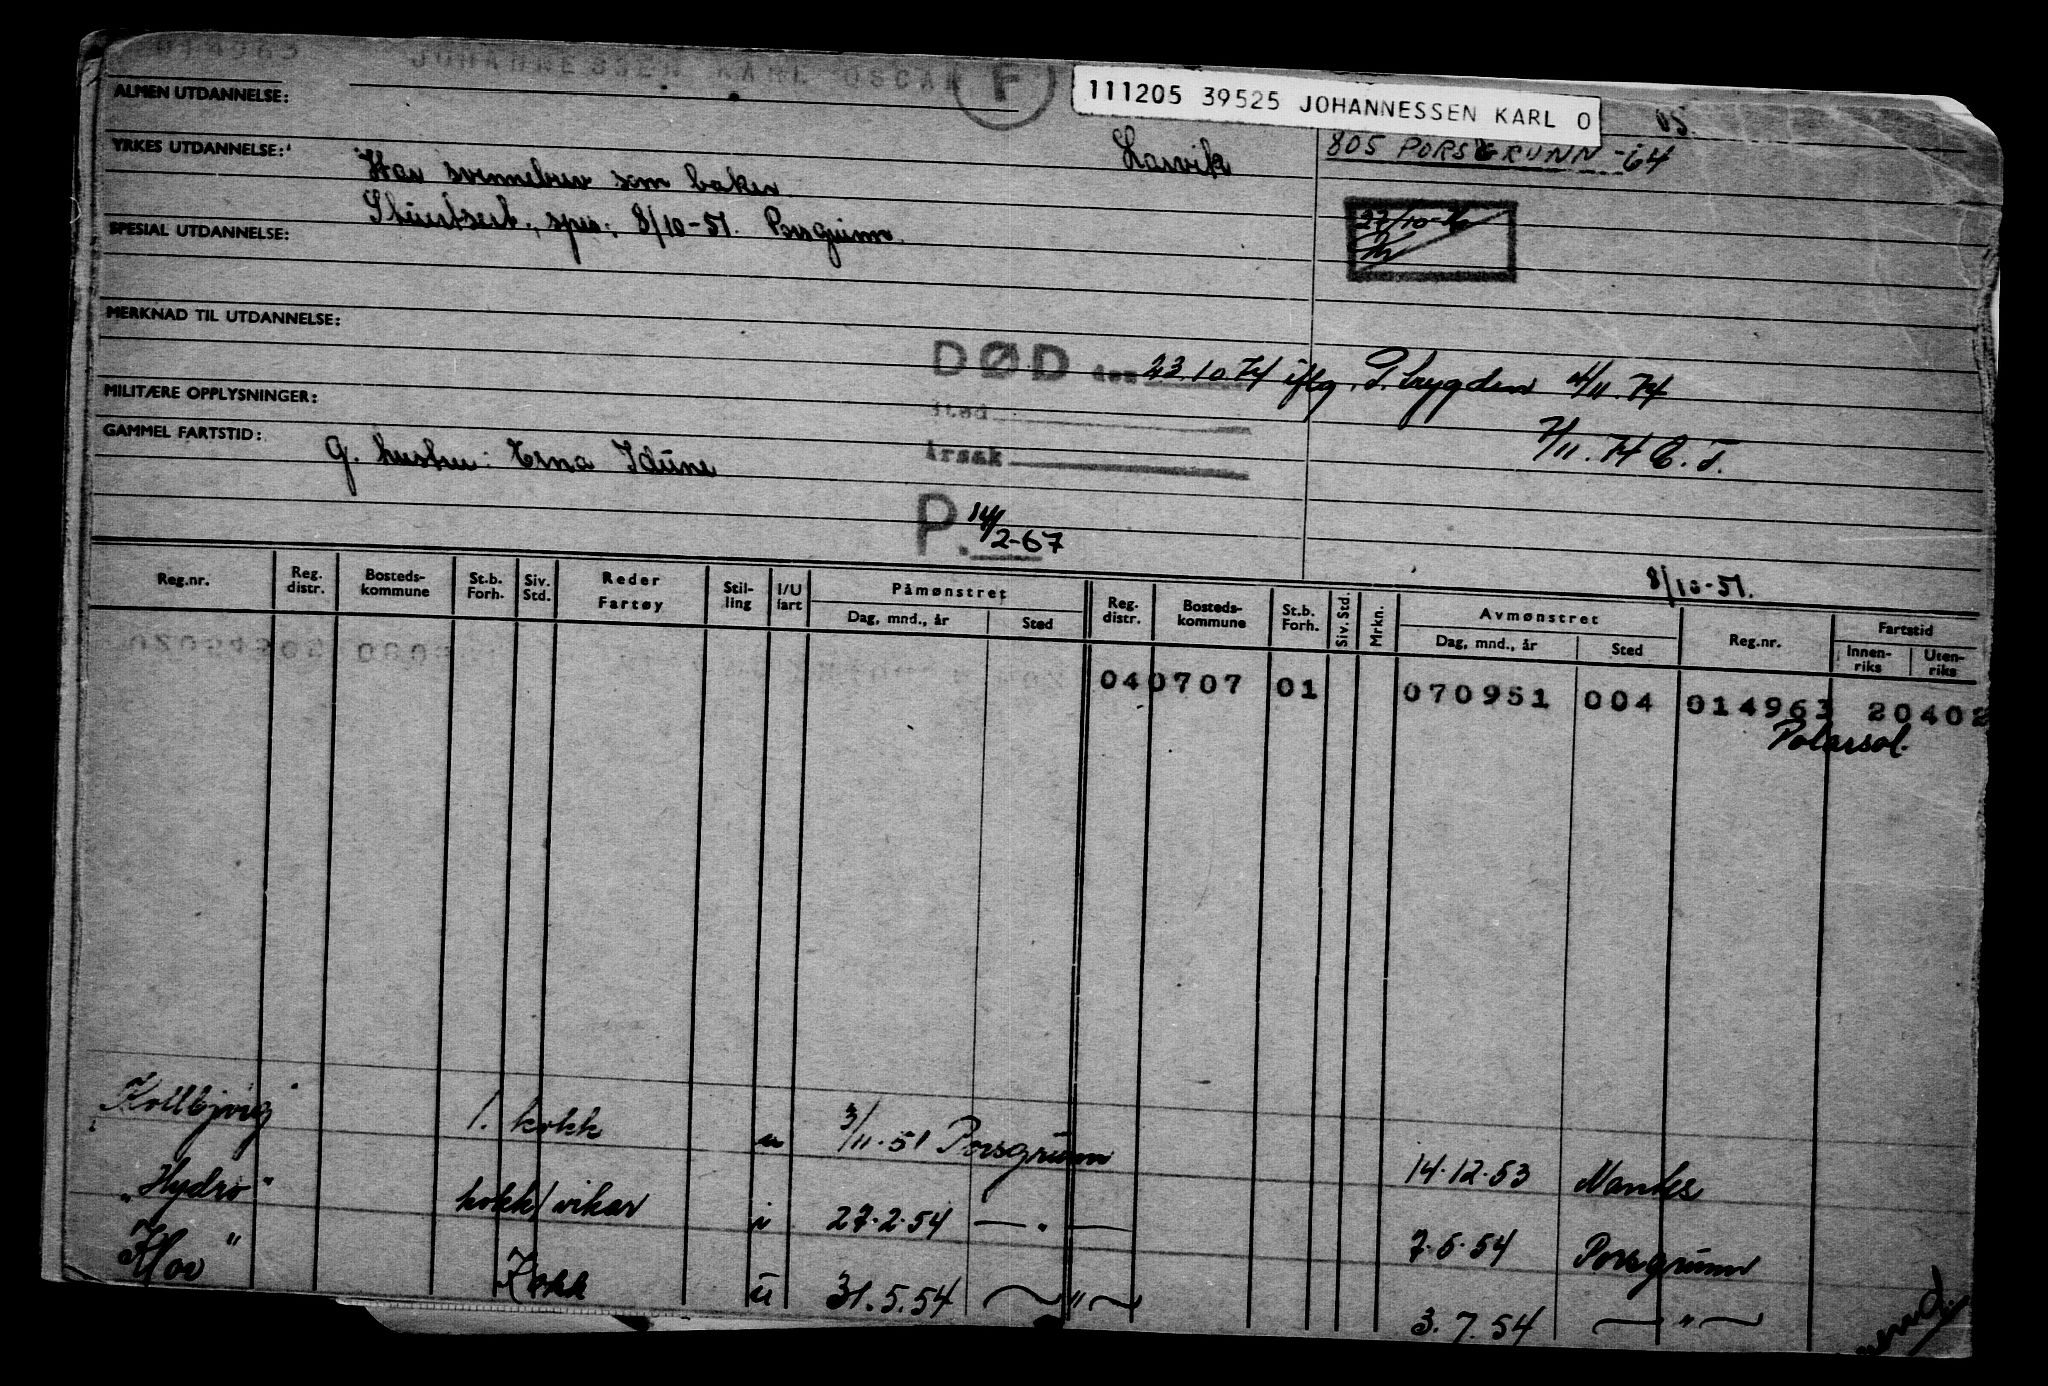 014963 JOHANNESSEN KARL OSCAR F
111205 39525 JOHANNESSEN KARL O
05.
ALMEN UTDANNELSE:
Larvik
805 PORSGRUNN -64
YRKES UTDANNELSE:
Har svennebrev som baker
Stuertsert., spes: 8/10-51. Porsgrunn.
SPESIAL UTDANNELSE:
MERKNAD TIL UTDANNELSE:
DØD den 23.10.74 iflg. P. trygden 4/11.74
Sted
7/11.74
MILITÆRE OPPLYSNINGER:
Årsak
GAMMEL FARTSTID:
g. hustru: Erna Idune
P. 14/2-67
8/10-51.
Reg.nr. Reg. distr. Bosteds-kommune St.b. Forh. Siv. Std. Reder Fartøy Stil-ling I/U fart Påmønstret Dag, mnd., år Sted Reg. distr. Bosteds-kommune St.b. Forh. Siv. Std. Mrkn. Avmønstret Dag, mnd., år Sted Reg.nr. Fartstid Innen-riks Uten-riks
040707 01 070951 004 014963 20402
Polarsol.
Kollbjørg 1. kokk u 3/11.51 Porsgrunn 14.12.53
"Hydro" kokk/vikar i 27.2.54 — " — 7.5.54 Porsgrunn
Kokk u 31.5.54 — " — 3.7.54 — " —